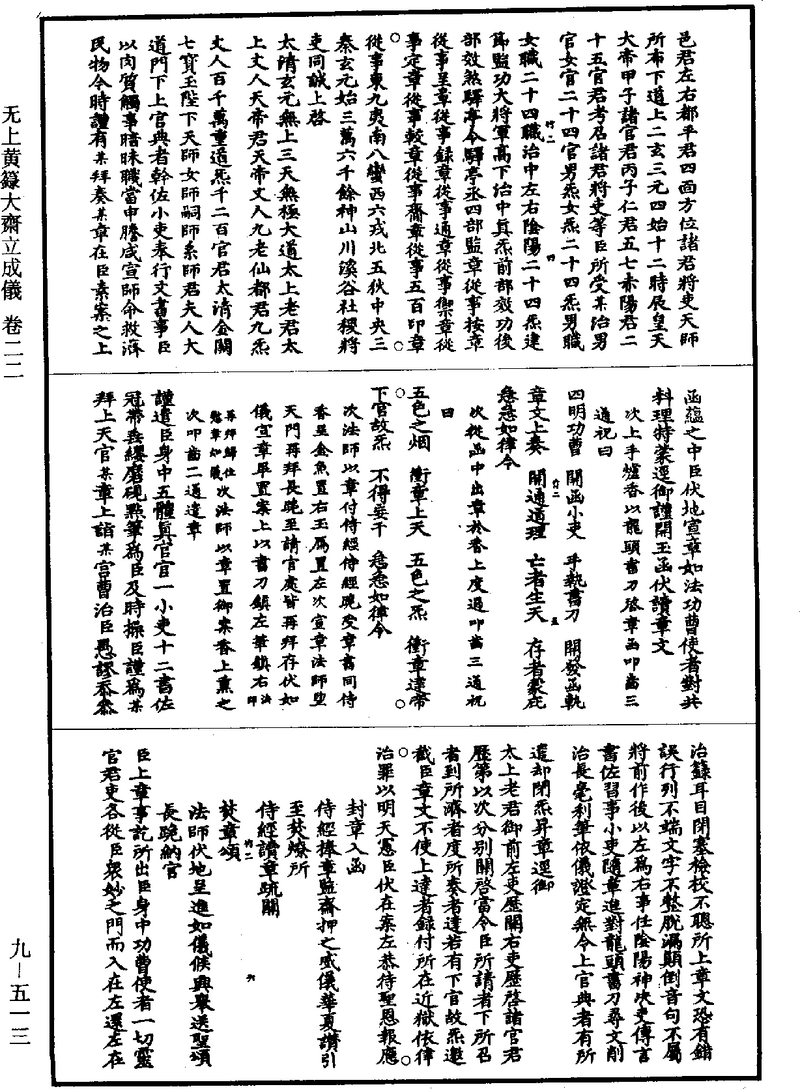 邑君左右都平君四面方位諸君將吏天師
所布下道上二玄三元四始十二時辰皇天
大帝甲子諸官君丙子仁君五七赤陽君二
十五官君考召諸君將吏等臣所受某治男
官女官二十四官男炁女炁二十四炁男職
女職二十四職治中左右陰陽二十四炁建
節監功大將軍高下治中真炁前部效功後
部效煞驛亭令驛亭丞四部監章從事按章
從事呈章從事録章從事通章從事禦章從
事定章從事較章從事齎章從事五百印章
從事東九夷南八蠻西六戎北五狄中央三
秦玄元始三萬六千餘神山川溪谷社稷將
吏同誠上啓
太清玄元無上三天無極大道太上老君太
上丈人天帝君天帝丈人九老仙都君九炁
丈人百千萬重道炁千二百官君太清金闕
七寶玉陛下天師女師嗣師系師君夫人大
道門下上官典者幹佐小吏奉行文書事臣
以肉質觸事暗昧職當申謄咸宣師命救濟
民物今時謹有某拜奏某章在臣素案之上
函蘊之中臣伏地宣章如法功曹使者對共
料理特蒙逕御謹開玉函伏讀章文
次上手爐香以龍頭書刀啓章函叩齒三
通祝曰
四明功曹 開函小吏 手執書刀 開發函軌
章文上奏 開通道理 亡者生天 存者蒙庇
急急如律令
次從函中出章於香上度過叩齒三通祝
曰
五色之烟 衝章上天 五色之炁 衝章達帝
下官故炁 不得妄干 急急如律令
次法師以章付侍經侍經跪受章書同侍
香呈金魚置右玉鴈置左次宣章法師望
天門再拜長跪至請官處皆再拜存伏如
儀宣章畢置案上以書刀鎮左筆鎮右法印
再拜歸位懃章如儀次法師以章置御案香上熏之
次叩齒二通達章
謹遣臣身中五體真官官一小吏十二書佐
冠帶垂纓磨硯點筆爲臣及時操臣謹爲某
拜上天官某章上詣某宫曹治臣愚謬忝忝
治籙耳目閉塞檢校不聰所上章文恐有錯
誤行列不端文字不整脱漏顛倒音句不屬
將前作後以左爲右事任陰陽神決吏傳言
書佐習事小吏隨章進對龍頭書刀尋文削
治長毫利筆依儀證定無令上官典者有所
遣却閉炁昇章逕御
太上老君御前左吏歷關右吏歷啓諸官君
歷第以次分别關啓當令臣所請者下所召
者到所濟者度所奏者達若有下官故炁邀
截臣章文不使上達者録付所在近獄依律
治罪以明天憲臣伏在案左恭待聖恩報應
封章入函
侍經捧章監齋押之威儀華夏讚引
至焚燎所
侍經讀章疏關
焚章頌
法師伏地至進如儀候興舉送聖頌
長跪納官
臣上章事訖所出臣身中功曹使者一切靈
官君吏各從臣衆妙之門而入在左還左在
无上黄籙大齋立成儀 卷二二
九—五一三